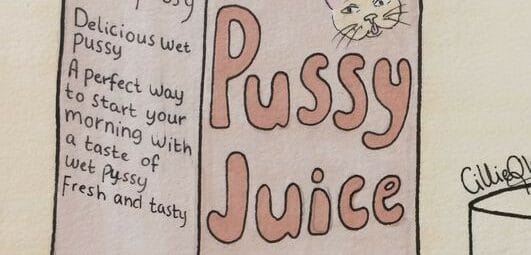 Delicious wet
pussy
A perfect way
to start your
morning with
a taste of
wet pussy
Fresh and tasty
Pussy
Juice